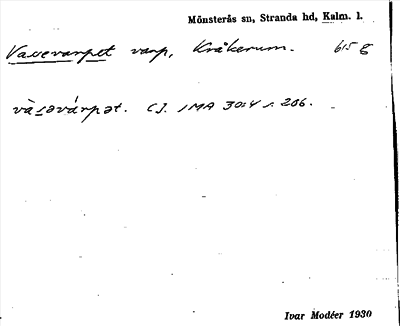 Mönsterås sn, Stranda hd, Kalm. l.
Vassevarpet varp, Kråkerum. 615 8
IMA 30:4 s. 286.
Ivar Modéer 1930